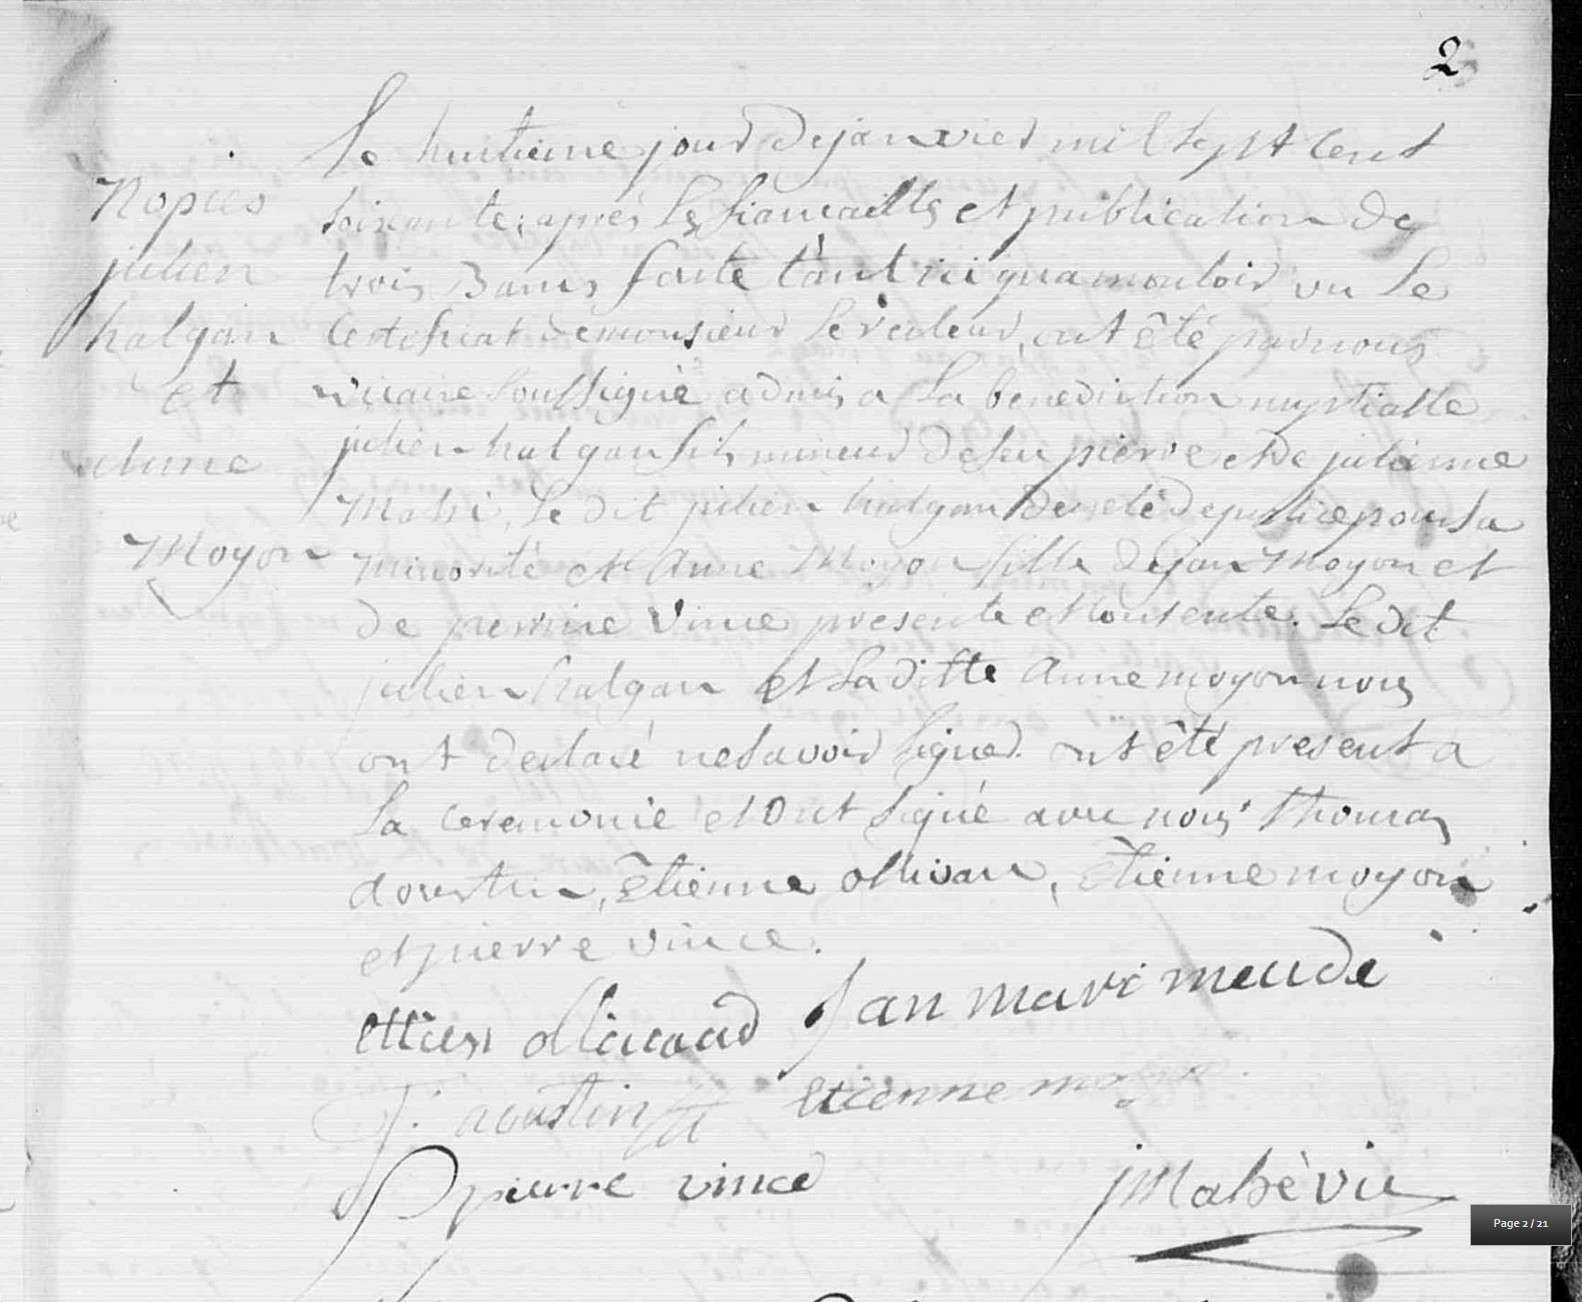 2
Le huitieme jour de janvier mil sept cent
soixante; après les fiancailles et publication de
trois Bans faite tant ici qua montoir vu le
Certificat de monsieur le recteur, ont êté par nous
vicaire soussigné admis a la benediction nuptialle
julien halgan fils mineur de feu pierre et de julienne
Mahé, le dit julien halgan decreté de justice pour sa
minorité et Anne Moyon fille de jan Moyon et
de perrine Vince presente et consente. Le dit
julien halgan et la ditte Anne moyon nous
ont declaré ne savoir signer. ont êté present a
la ceremonie et Ont signé avec nous Thomas
aoustin, êtienne ollivau, êtienne moyon
et pierre vince.
Nopces
julien
halgan
et
Anne
Moyon
ettien olliuaud Jan mari meude
T: aoustin etienne moyon
pierre vince jMahé vic
Page 2 / 21